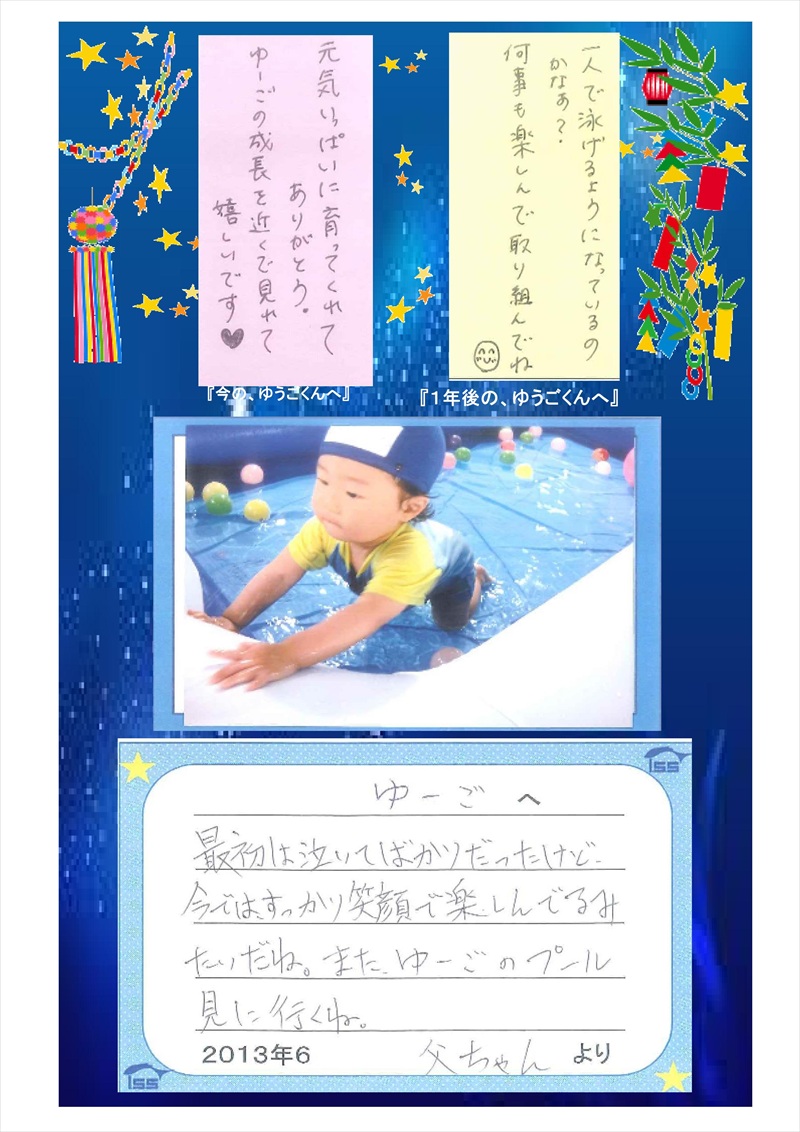 元気いっぱいに育ってくれて
ありがとう。
ゆーごの成長を近くで見れて
嬉しいです♥
『今の、ゆうごくんへ』
一人で泳げるようになっているの
かなぁ?
何事も楽しんで取り組んでね
『1年後の、ゆうごくんへ』
ISS
ゆーご へ
最初は泣いてばかりだったけど、
今では、すっかり笑顔で楽しんでるみ
たいだね。また、ゆーごのプール
見に行くね。
2013年6 父ちゃん より
ISS